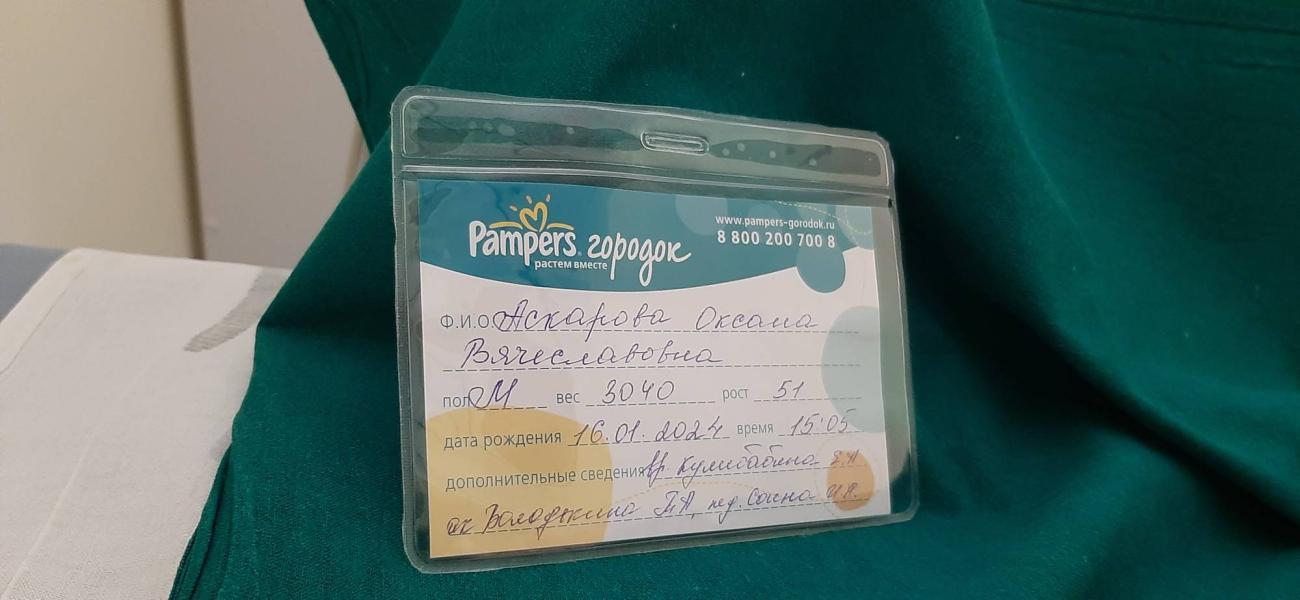 Pampers городок
растем вместе
www.pampers-gorodok.ru
8 800 200 700 8
Ф.И.О. Аскарова Оксана
Вячеславовна
пол М вес 3040 рост 51
дата рождения 16.01.2024 время 15:05
дополнительные сведения вр. Кулибабина
ак Володькина П.А, пед. Сонина